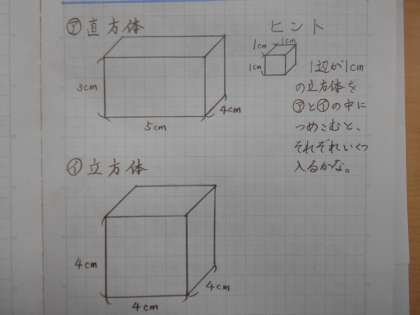 ㋐直方体
3cm
5cm
4cm
㋑立方体
4cm
4cm
4cm
ヒント
1cm
1cm
1cm
1辺が1cm
の立方体を
㋐と㋑の中に
つめこむと、
それぞれいくつ
入るかな。